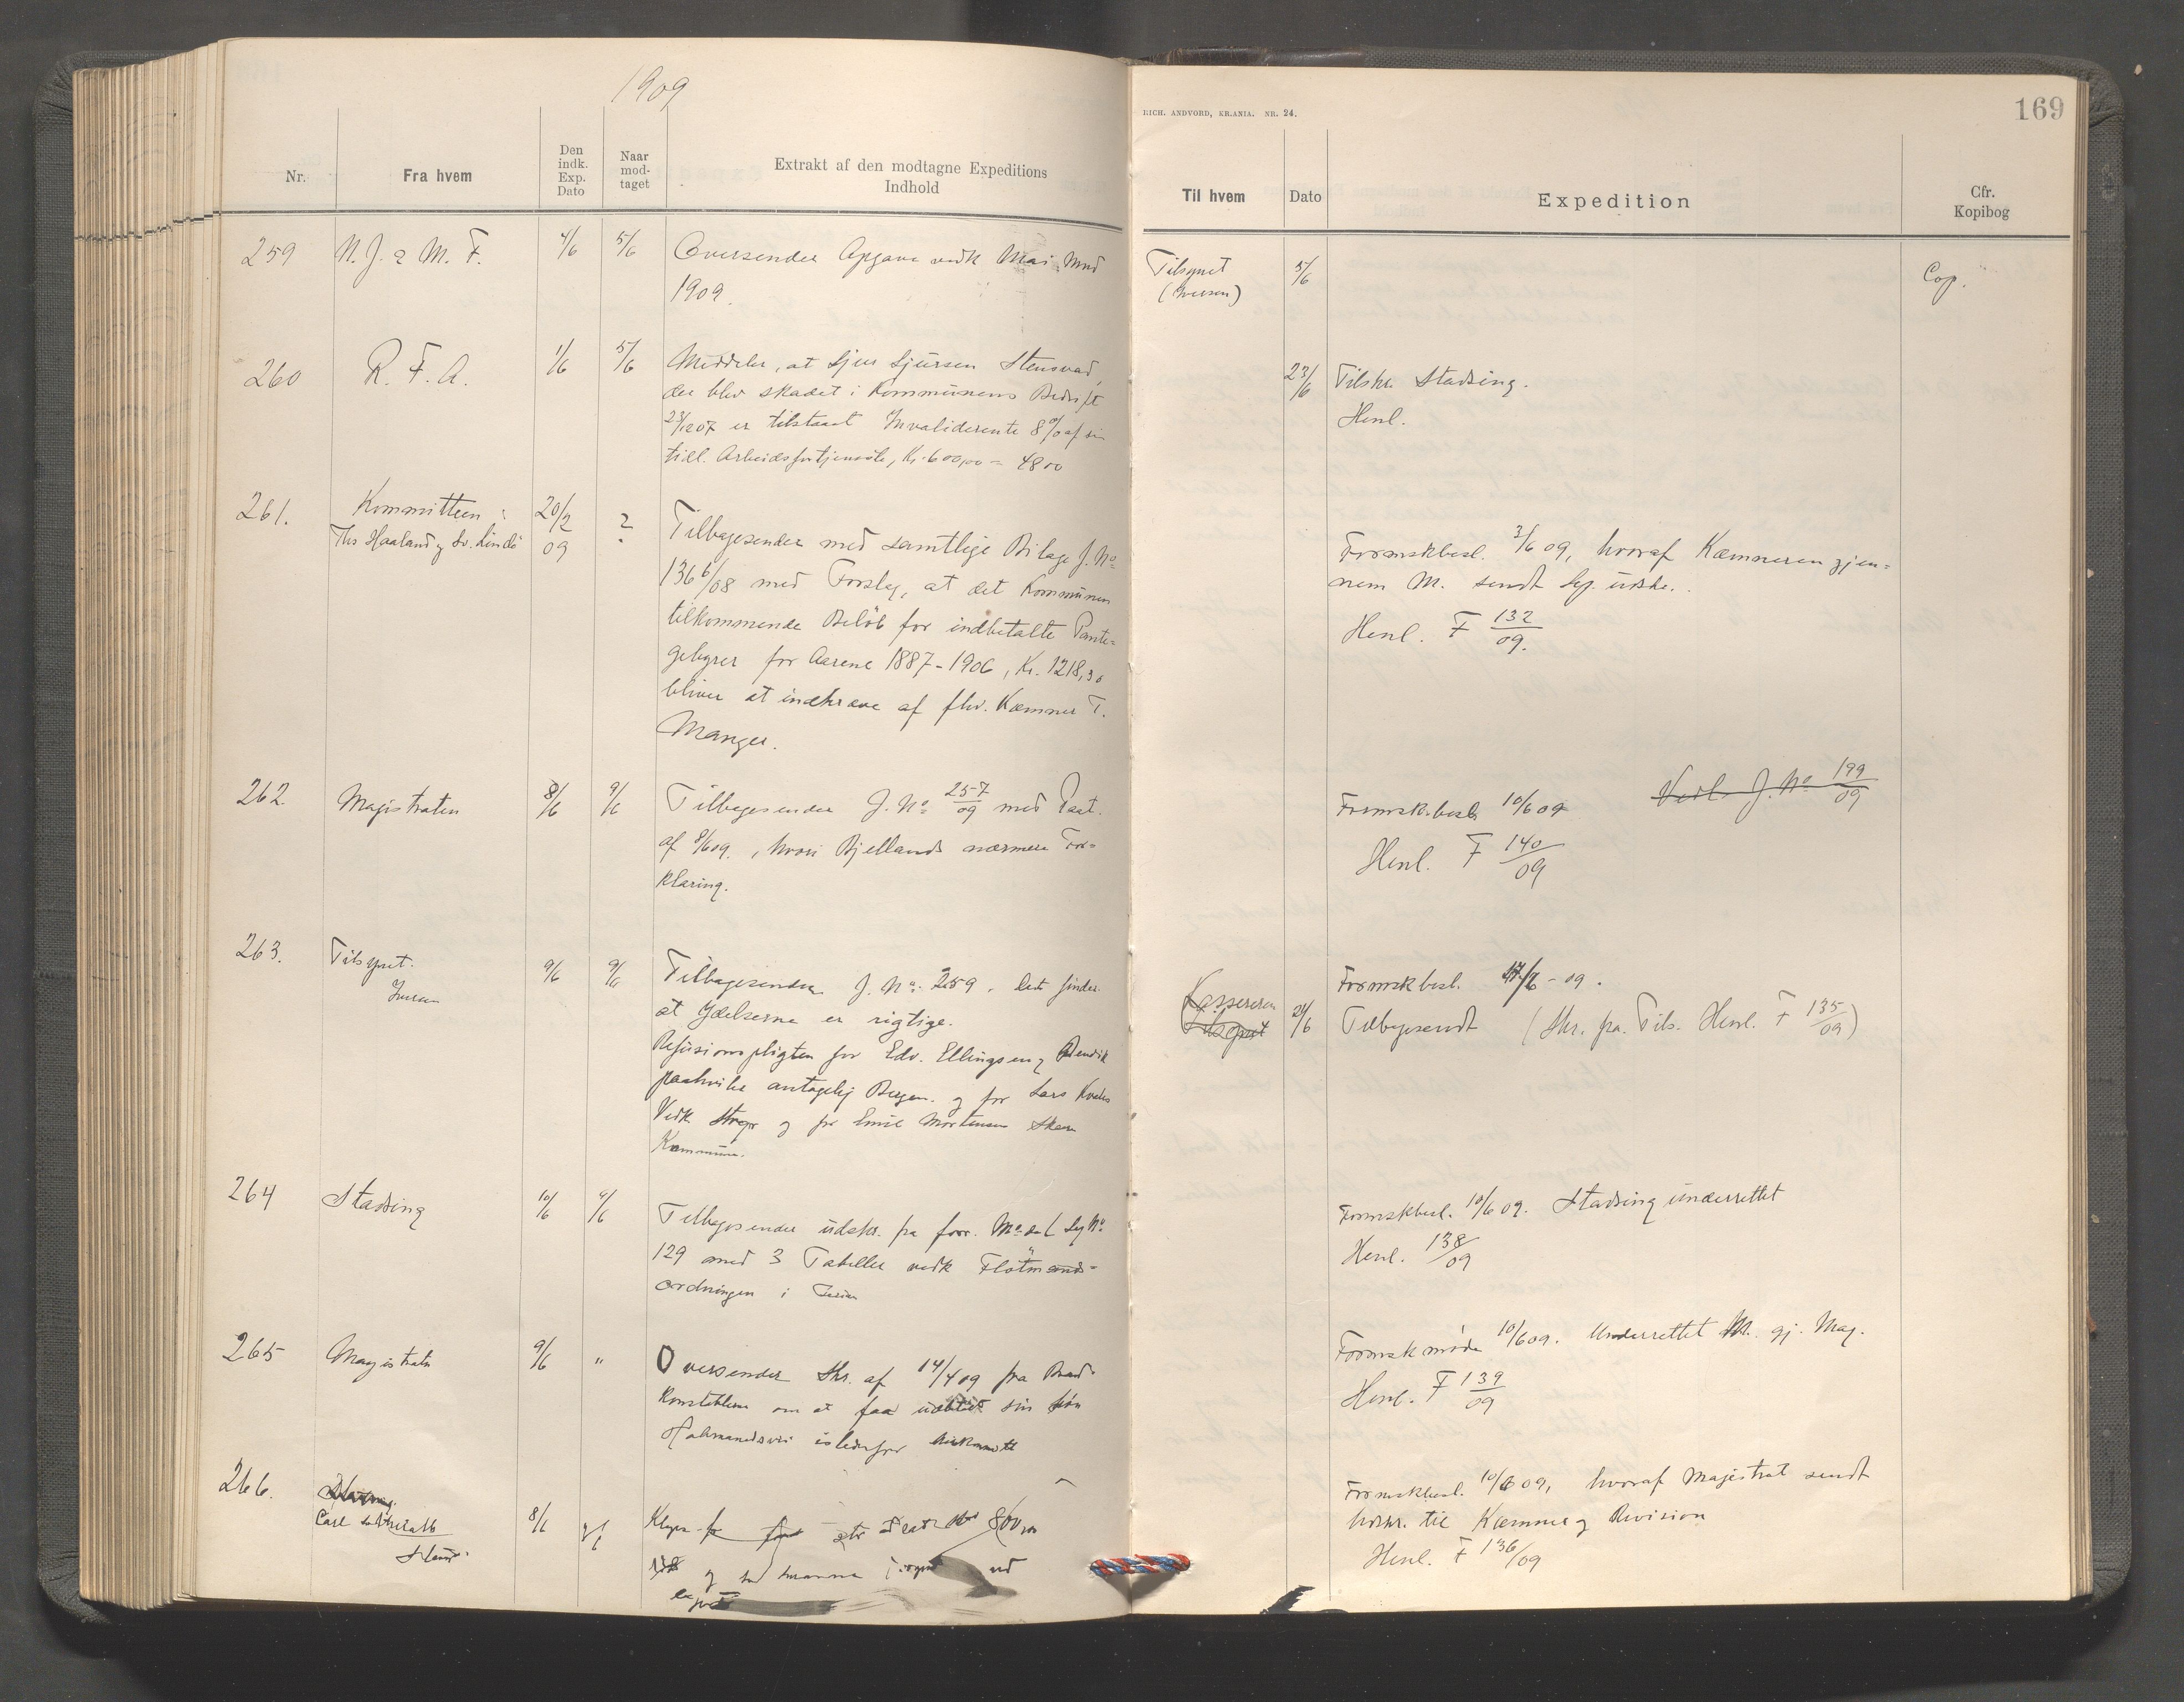 1909
Nr.
Fra hvem
Den
indk.
Exp.
Dato
Naar
mod-
taget
Extrakt af den modtagne Expeditions
Indhold
259
N. J. & M. F.
4/6
5/6
Oversender Opgave vedk Mai Mnd
1909.
260
R. F. A.
1/6
5/6
Meddeler, at Sjur Sjursen Stensvad,
der blev skadet i Kommunens Bedrift
23/12 07 er tilstaaet Invaliderente 8% af sin
tidl. Arbeidsfortjeneste, Kr. 600,00 = 48 00
261.
Kommitteen
Ths Haaland og
20/2
09
?
Tilbagesender med samtlige Bilage J. No
136 6/08 med Forslag, at det Kommunen
tilkommende Beløb for indbetalte Pante-
gebyrer for Aarene 1887-1906, Kr. 1218,30
bliver at indkræve af fhv. Kæmner T.
Manger.
262.
Magistraten
8/6
9/6
Tilbagesender J. No 257/09 med Paat.
af 8/6 09, hvori Bjellands nærmere For-
klaring.
263.
Tilsynet.
Iversen
9/6
9/6
Tilbagesender J. No. 259. Det finder
at Ydelserne er rigtige.
Refusionspligten for Edv. Ellingsen og
paahviler antagelig Bergen. og for Lars
Vedk. og for Emil Mortensen
Kommune.
264
Stadsing
10/6
9/6
Tilbagesender udskr. fra forr. No
129 med 3 Tabeller vedk
ordningen i
265
Magistraten
9/6
"
Oversender Skr. af 14/4 09 fra Brand-
konstablerne om at faa sin
istedenfor
266.
Carl
8/6
Klage
800,00
og
RICH. ANDVORD, KR.ANIA. NR. 24.
169
Til hvem
Dato
Expedition
Cfr.
Kopibog
Tilsynet
(Iversen)
5/6
Cop.
23/6
Tilskr. Stadsing.
Henl.
Formskbesl. 3/6 09, hvoraf Kæmneren gjen-
nem M. sendt udskr.
Henl. F 132/09.
Formsk.besl. 10/6 09
Vedl. J. No 199/09
Henl. F 140/09
Formskbesl. 17/6 - 09.
Kassereren
Tilsynet
21/6
Tilbagesendt (Skr. fra Tils. Henl. F 135/09)
Formskbesl. 10/6 09. Stadsing underrettet
Henl. 138/09
Formsk møde 10/6 09. Underrettet M. gj. Mag.
Henl. F 139/09
Formskbesl. 10/6 09, hvoraf Magistrat sendt
Udskr. til Kæmner og Revision
Henl. F 136/09